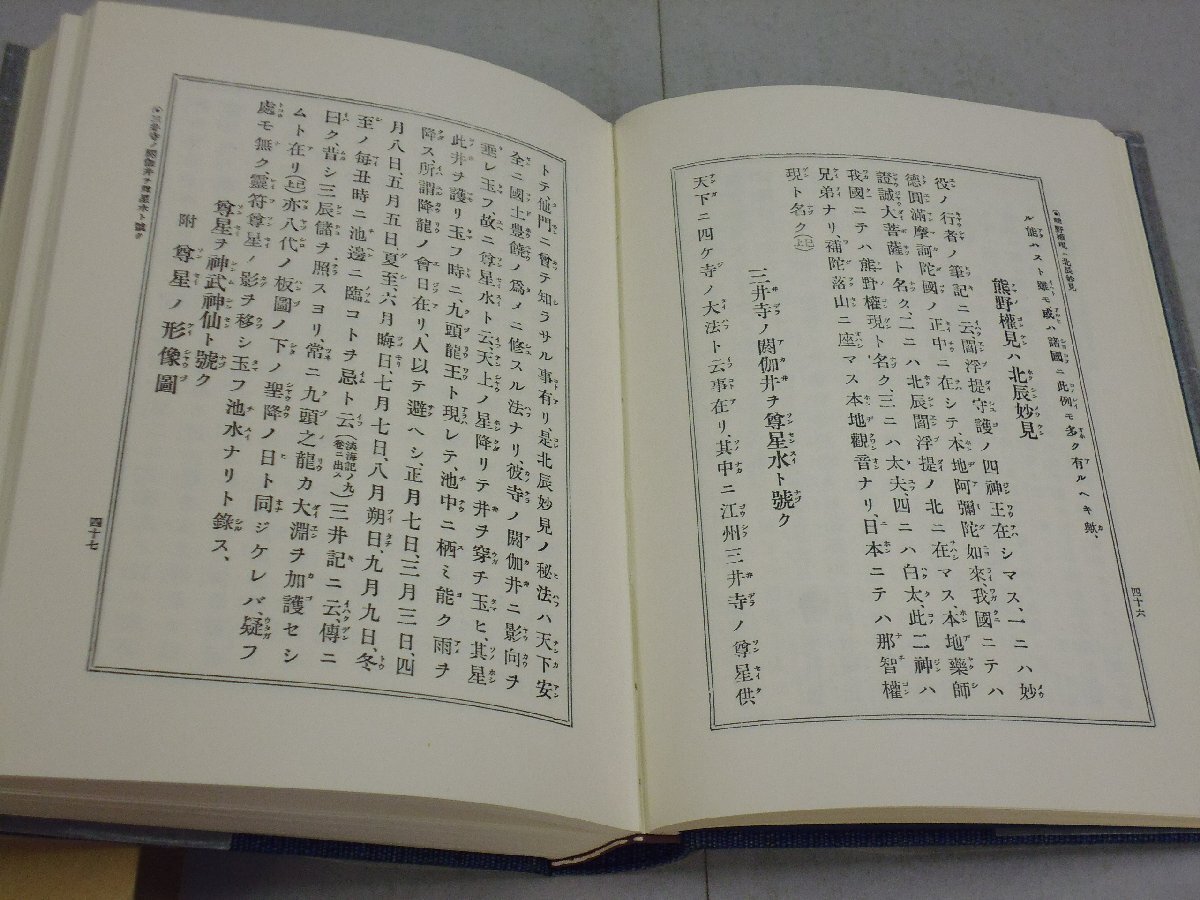 熊野權現ハ北辰妙見
四十六
ル能ハスト雖モ或ハ諸國ニ此例モ多ク有ルヘキ歟、
熊野權見ハ北辰妙見
役ノ行者ノ筆記ニ云閻浮提守護ノ四神王在シマス、一ニハ妙
德圓滿摩訶陀國ノ正中ニ在シテ本地阿彌陀如來、我國ニテハ
證誠大菩薩ト名ク、二ニハ北辰閻浮提ノ北ニ在マス、本地藥師
我國ニテハ熊野權現ト名ク、三ニハ太夫、四ニハ白太、此二神ハ
兄弟ナリ、補陀落山ニ座マス本地觀音ナリ、日本ニテハ那智權
現ト名ク(上巳)
三井寺ノ閼伽井ヲ尊星水ト號ク
天下ニ四ケ寺ノ大法ト云事在リ、其中ニ江州三井寺ノ尊星供
トテ、他門ニ曾テ知ラサル事有リ是北辰妙見ノ秘法ハ天下安
全ニ國土豊饒ノ爲メニ修スル法ナリ、彼寺ノ閼伽井ニ影向ヲ
垂レ玉フ故ニ尊星水ト云天上ノ星降リテ井ヲ穿チ玉ヒ、其星
此井ヲ護リ玉フ時ニ九頭龍王ト現レテ、池中ニ栖ミ能ク雨ヲ
降ス、所謂降龍ノ會日在リ、人以テ避ヘシ、正月七日、三月三日、四
月八日、五月五日夏至、六月晦日、七月七日、八月朔日、九月九日、冬
至ノ每丑時ニ池邊ニ臨コトヲ忌ト云(淡海記ノ九卷ニ出ス)三井記ニ云、傳ニ
曰ク、昔シ三辰儲ヲ照スヨリ、常ニ九頭之龍カ大淵ヲ加護セシ
ムト在リ(上巳)亦八代ノ板圖ノ下ノ聖降ノ日ト同ジケレバ、疑フ
處モ無ク、靈符尊星ノ影ヲ移シ玉フ池水ナリト錄ス、
尊星ヲ神武神仙ト號ク
附 尊星ノ形像圖
三井寺ノ閼伽井ヲ尊星水ト號ク
四十七